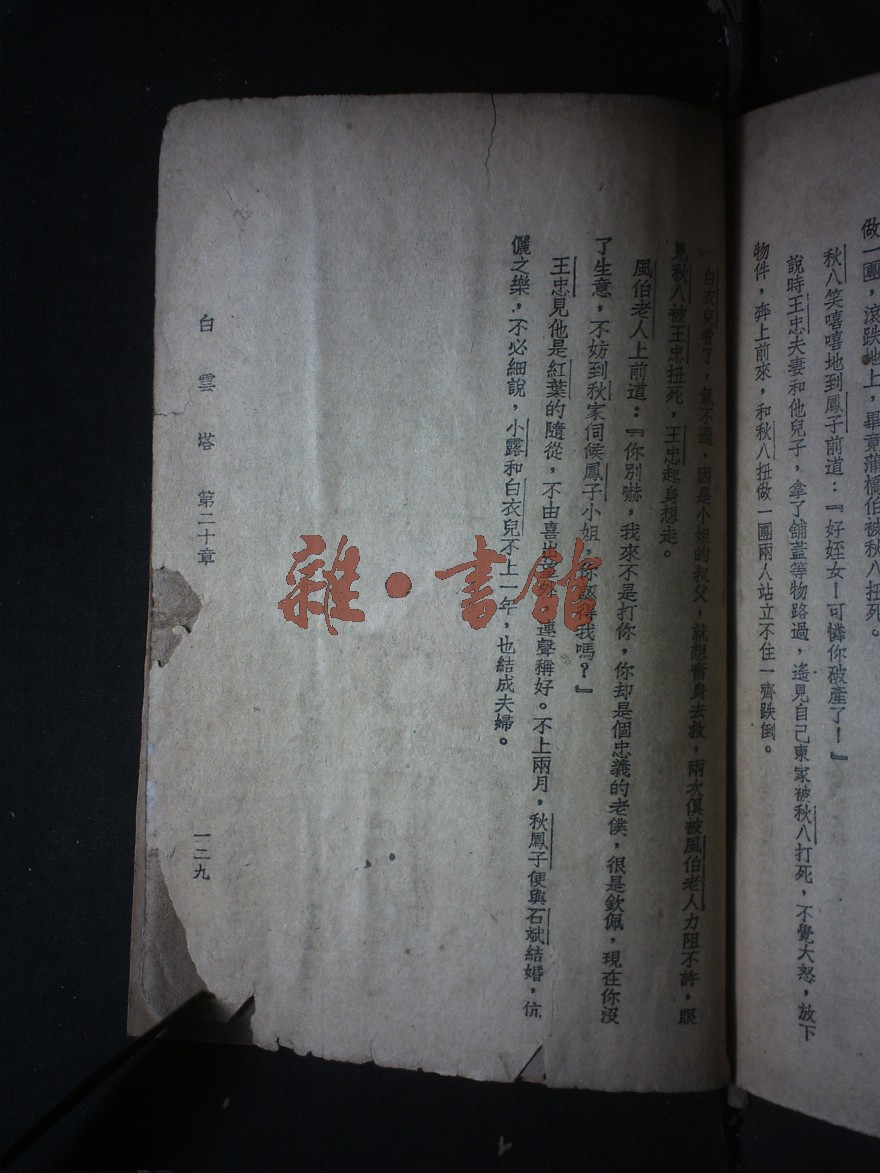 做一團，滾跌地上，畢竟蒲橋伯被秋八扭死。
秋八笑嘻嘻地到鳳子前道：『好姪女！可憐你破產了！』
說時王忠夫妻和他兒子，拿了舖蓋等物路過，遙見自己東家被秋八打死，不覺大怒，放下
物件，奔上前來，和秋八扭做一團兩人站立不住一齊跌倒。
白衣兒看了，氣不過，因是小姐的叔父，就想奮身去救，兩次俱被風伯老人力阻不許，眼
見秋八被王忠扭死，王忠起身想走。
風伯老人上前道：『你別嚇，我來不是打你，你却是個忠義的老僕，很是欽佩，現在你沒
了生意，不妨到秋家伺候鳳子小姐，你認得我嗎？』
王忠見他是紅葉的隨從，不由喜出連聲稱好。不上兩月，秋鳳子便與石斌結婚，伉
儷之樂，不必細說，小露和白衣兒不上一年，也結成夫婦。
白雲塔 第二十章
一二九
雜·書館